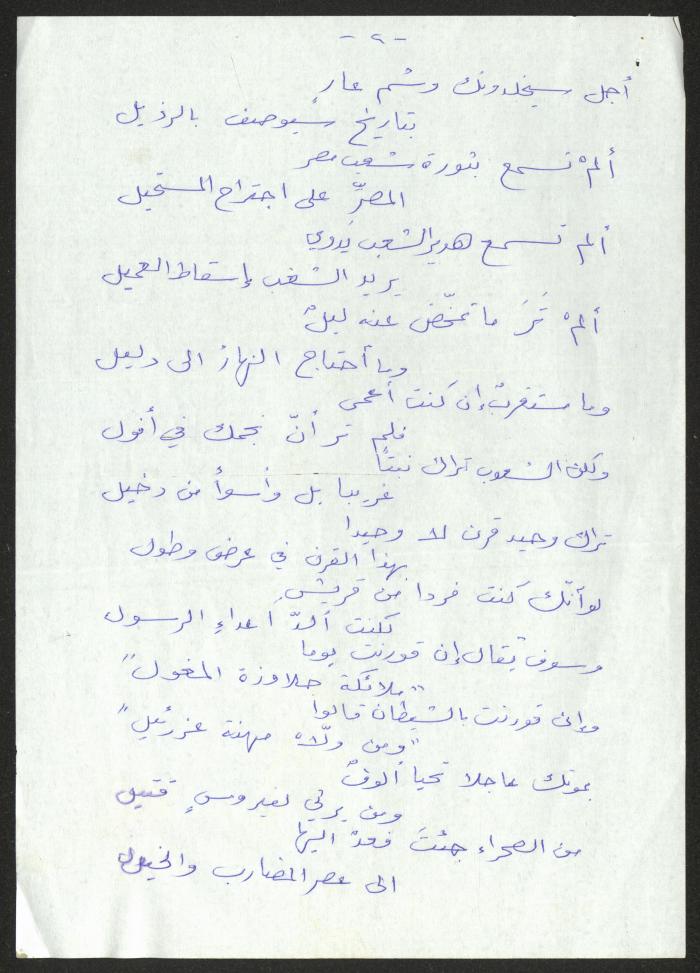 - ٢ -
أجل سيخلدونك وشم عار
بتاريخ سيوصف بالرذيل
ألمْ تسمع بثورة شعب مصر
المصرِّ على اجتراح المستحيل
ألم تسمع هدير الشعب يَدوي
يريد الشعب إسقاط العميل
ألمْ تَرَ ما تمخّض عنه ليلٌ
وما أحتاج النهارُ الى دليل
وما مستغربٌ إن كنت أعمى
فلم تر أنّ نجمك في أفول
ولكن الشعوب تراك نبتًا
غريبا بل وأسوأ من دخيل
تراك وحيد قرن لا وحيدا
بهذا القرن في عرض وطول
لو أنّك كنت فردا من قريشٍ
لكنت ألدّ اعداءِ الرسول
وسوف يُقال إن قورنت يوما
"ملائكة جلاوزة المغول"
وإن قورنت بالشيطان قالوا
"ومن ولّاه مهنة عزرئيل"
بموتك عاجلا تحيا ألوفٌ
ومن يرثي لفيروسٍ قتيل
من الصحراء جئتَ فعدْ اليها
الى عصر المضارب والخيول